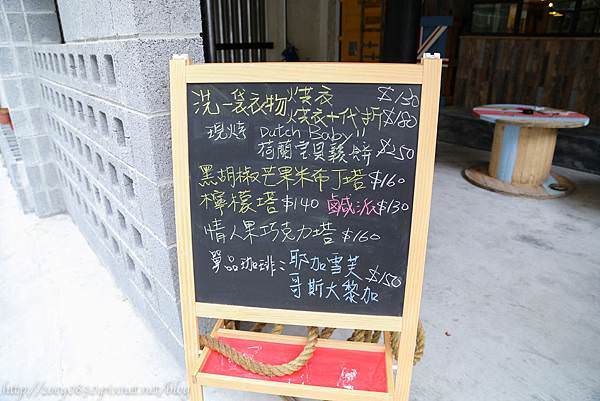 洗一袋衣物烘衣 $130
烘衣+代折 $180
現烤 Dutch Baby"
荷蘭寶貝鬆餅 $250
黑胡椒芒果米布丁塔 $160
檸檬塔 $140 鹹派 $130
情人果巧克力塔 $160
單品咖啡: 耶加雪芙 $150
哥斯大黎加